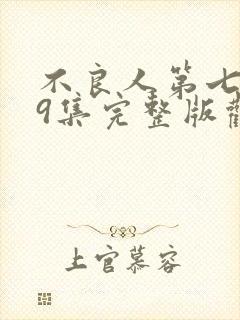 不良人第七
9集完整版
上官慕容